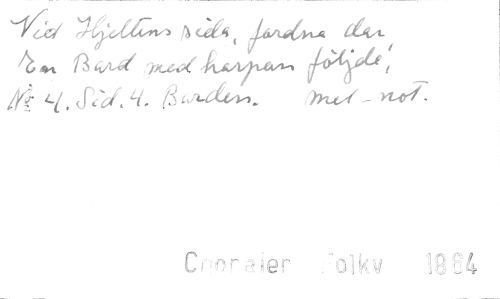 Vid Hjeltens sida, fordna dar
En Bard med harpan följde,
No 4. Sid. 4. Barden. mel-not.
Choraler Folkv 1864